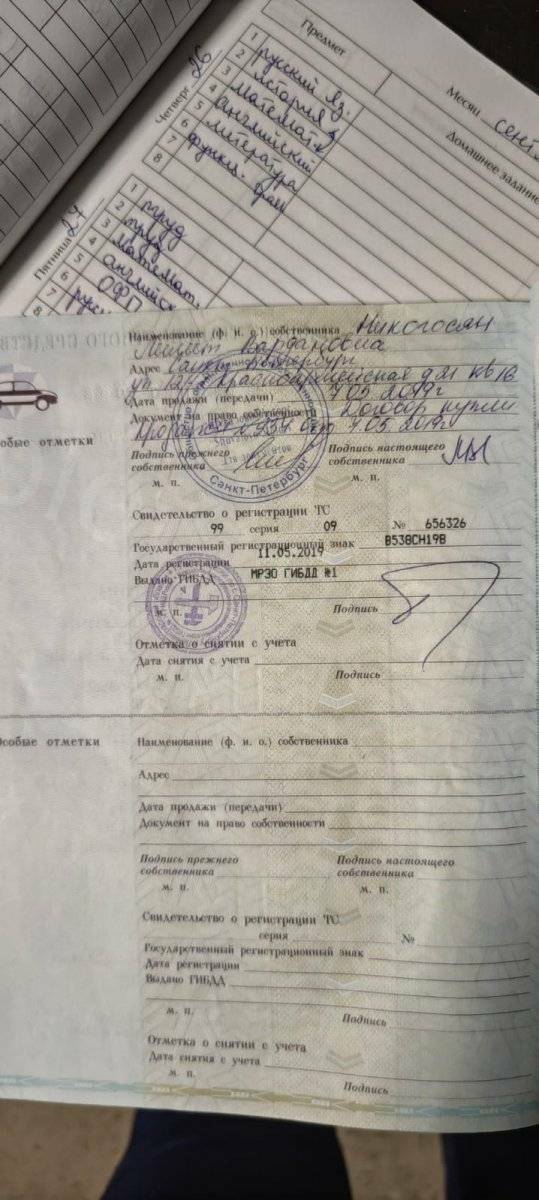 Предмет
Месяц сент
Домашнее задание
Четверг 26
1 русский яз.
2 история
3 математ.
4 английский
5 литература
6 функц. грам
7
8
Пятница 27
1 труд
2 труд
3 математ.
4 английск
5 ОФП
6 русс
7
8
ного средств
Особые отметки
Наименование (ф. и. о.) собственника Никогосян
Вардановна
Адрес Санкт-Петербург
ул. Красноармейская д. кв 16
Дата продажи (передачи) 7.05 2019г
Документ на право собственности Договор купли
7.05.2019г.
Подпись прежнего собственника
Подпись настоящего собственника
Санкт-Петербург
м. п.
м. п.
Свидетельство о регистрации ТС
99 серия 09 № 656326
Государственный регистрационный знак В538СН198
Дата регистрации 11.05.2019
Выдано ГИБДД МРЭО ГИБДД №1
м. п.
Подпись
Отметка о снятии с учета
Дата снятия с учета
м. п.
Подпись
Особые отметки
Наименование (ф. и. о.) собственника
Адрес
Дата продажи (передачи)
Документ на право собственности
Подпись прежнего собственника
Подпись настоящего собственника
м. п.
м. п.
Свидетельство о регистрации ТС
серия №
Государственный регистрационный знак
Дата регистрации
Выдано ГИБДД
м. п.
Подпись
Отметка о снятии с учета
Дата снятия с учета
м. п.
Подпись